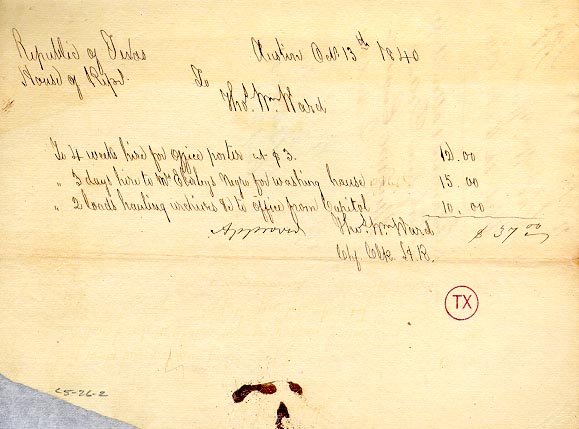 Republic of Texas Austin Oct 13th 1840
House of Reps. To
Thos. Wm Ward
To 4 weeks hire for office porter at $3. 12.00
" 3 days hire to Mr Negro for washing house 15.00
" 2 loads hauling archives &c to office from Capitol 10.00
Approved Thos. Wm Ward $37 00
Chf Clk H.R.
TX
C5-26-2